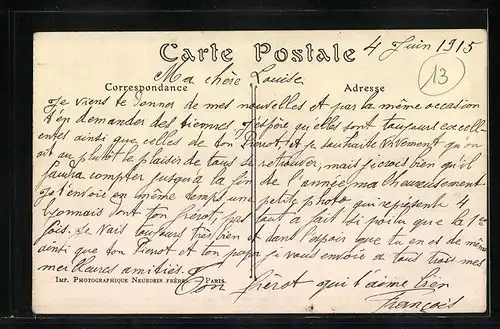 Carte Postale
4 Juin 1915
13
Ma chère Louise.
Correspondance
Adresse
Je viens te donner de mes nouvelles et par la même occasion
t'en demander des tiennes. J'espère qu'elles sont toujours excell-
entes ainsi que celles de ton Pierrot, et je souhaite vivement qu'on
ait au plutôt le plaisir de tous se retrouver, mais je crois bien qu'il
faudra compter jusqu'à la fin de l'année, malheureusement.
Je t'envoie en même temps une petite photo qui représente 4
lyonnais dont ton frérot, pas tout à fait si poilu que la 1ère
fois. Je vais toujours très bien et dans l'espoir que tu en es de même
ainsi que ton Pierrot et ton papa je vous envoie à tous trois mes
meilleures amitiés.
Ton frérot qui t'aime bien
IMP. PHOTOGRAPHIQUE NEURDEIN FRÈRES. PARIS.
François